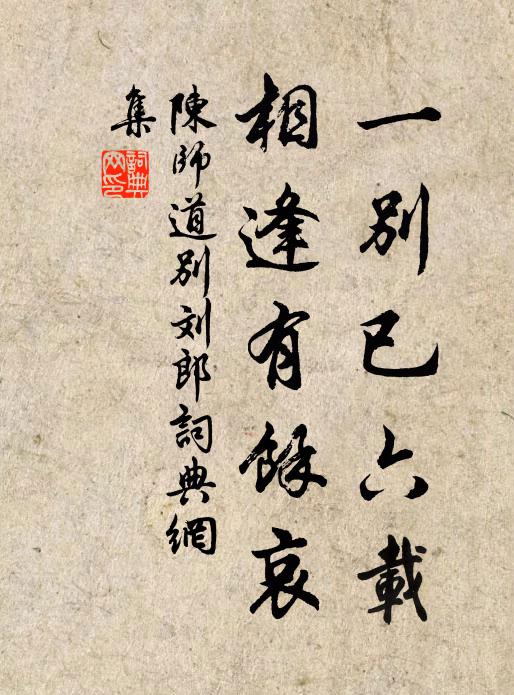 一别已六載
相逢有餘哀
陳師道别刘郎詞典網
集
詞典
网印